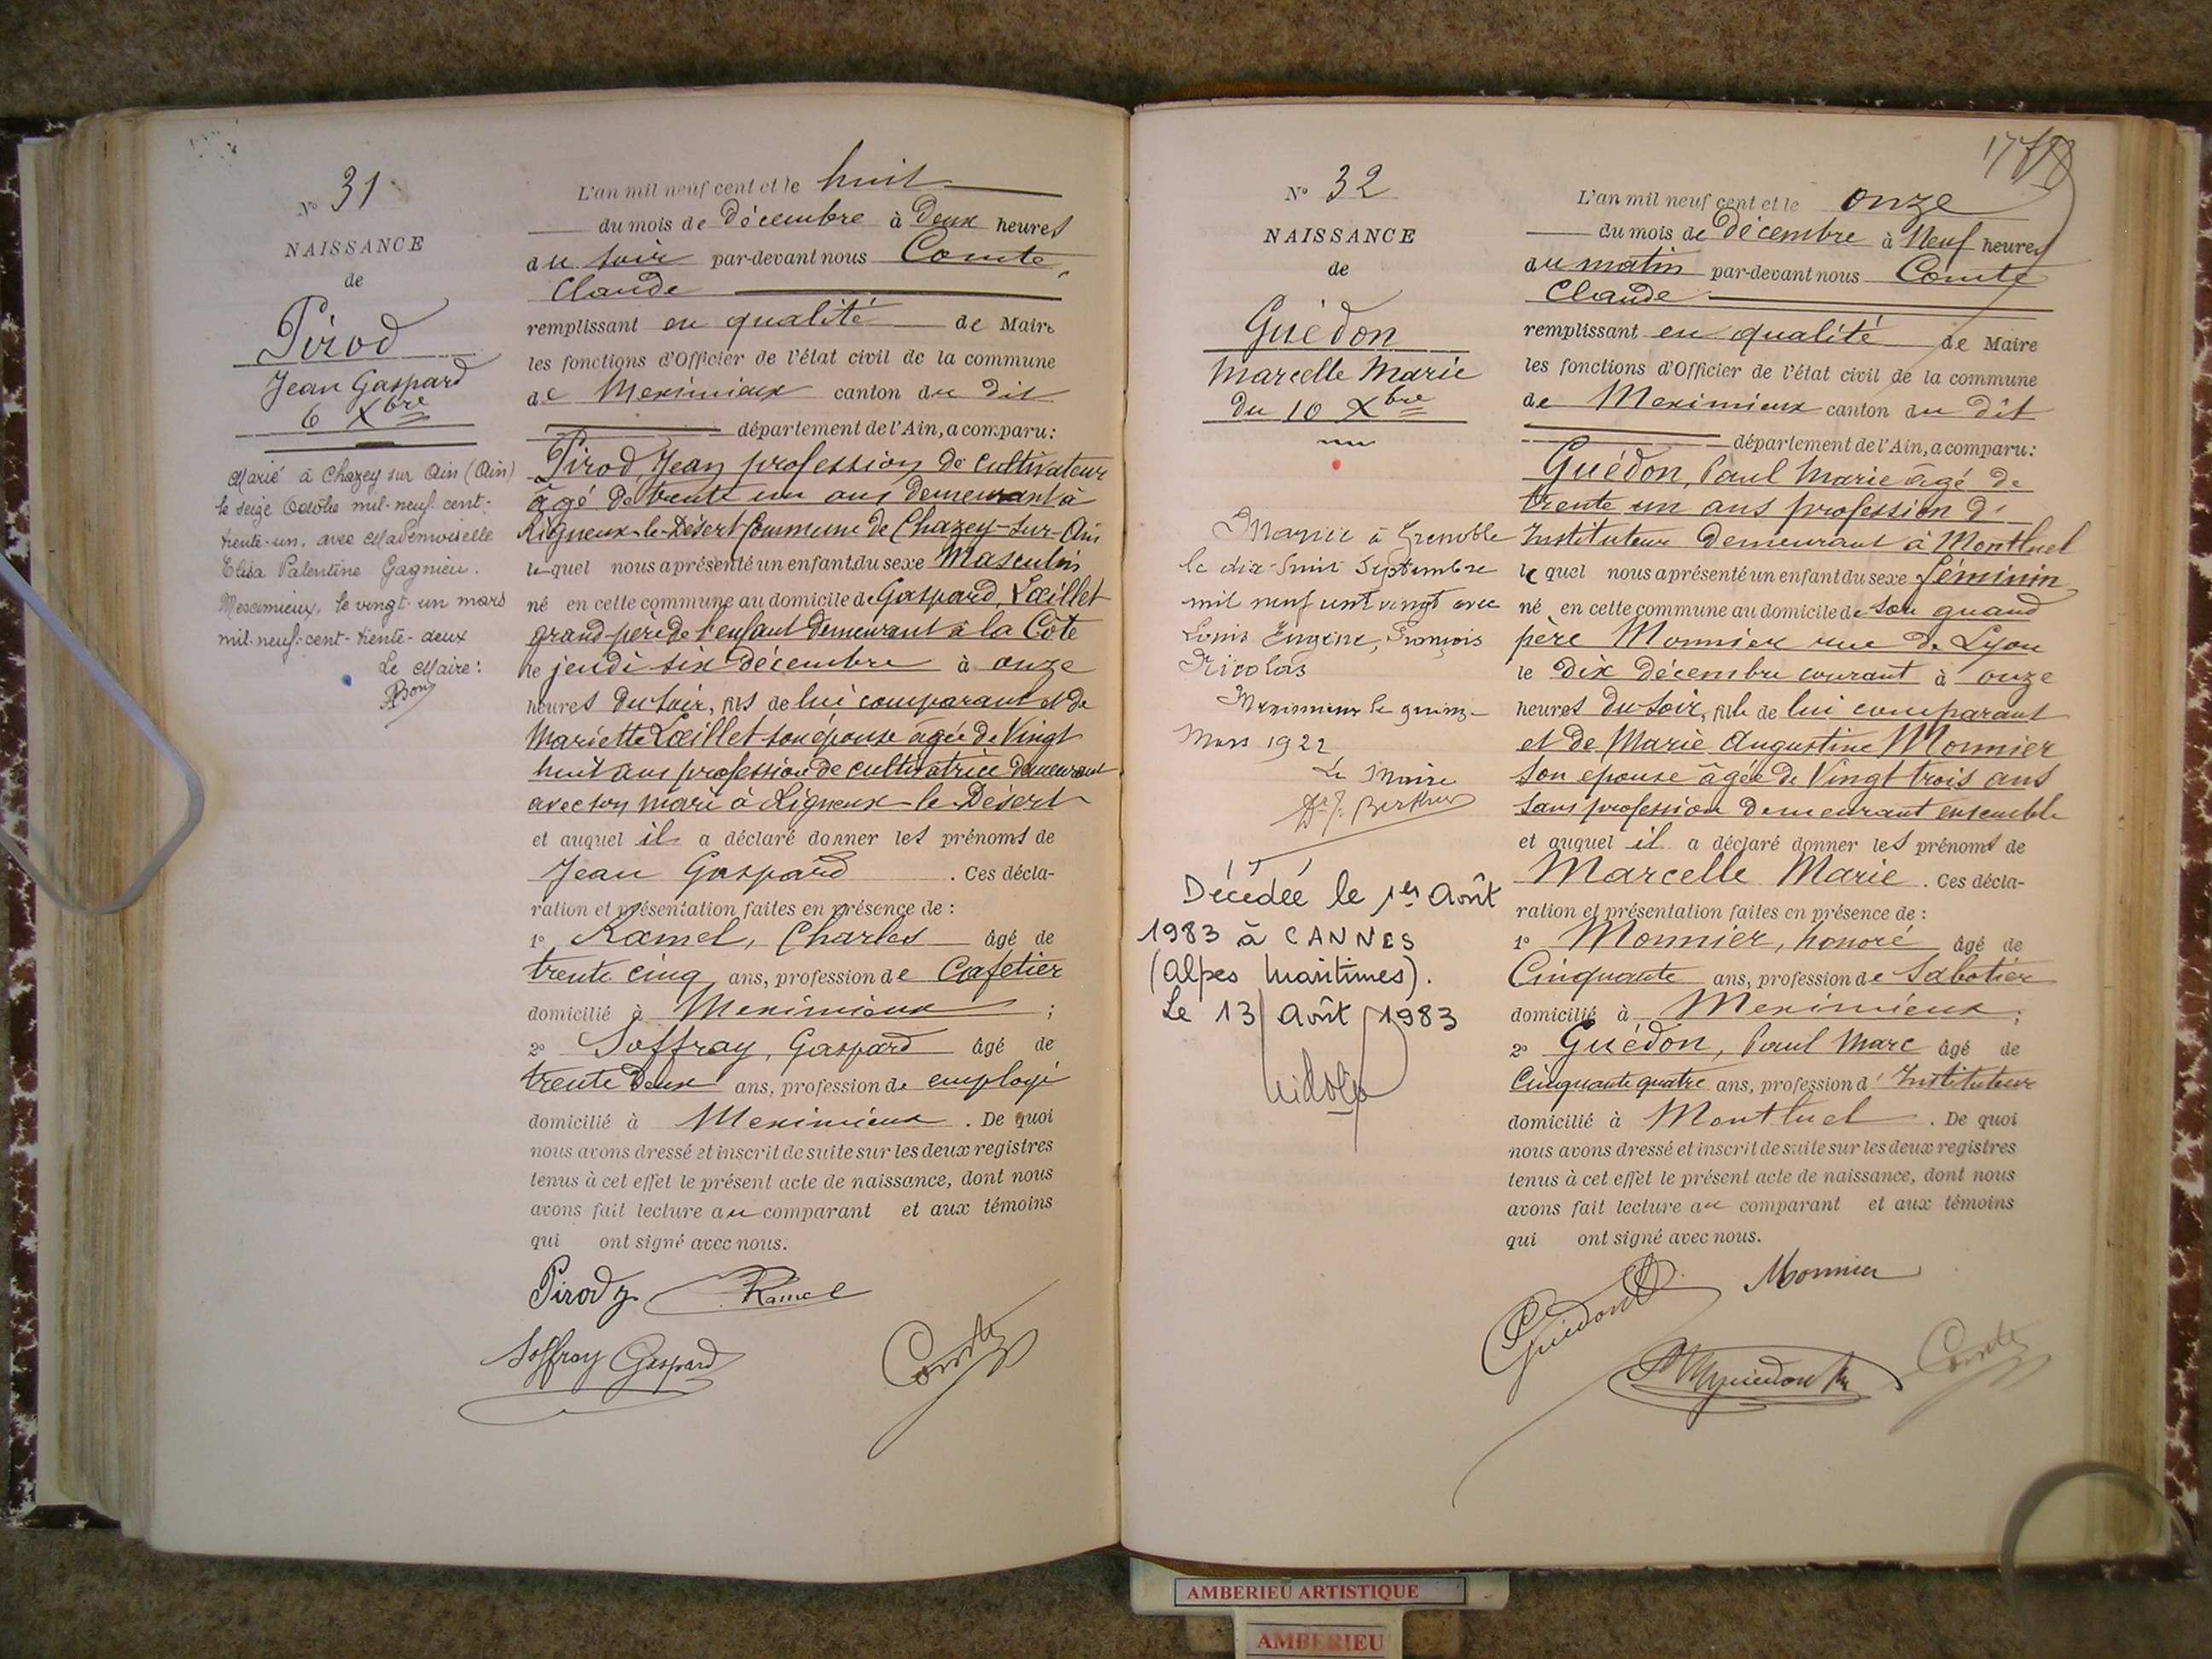 N° 31
NAISSANCE
de
Pirod
Jean Gaspard
6 Xbre
Marié à Chazey sur Ain (Ain)
le seize Octobre mil-neuf-cent-
trente-un, avec Mademoiselle
Elisa Valentine Gagnieu.
Meximieux, le vingt-un mars
mil-neuf-cent-trente-deux
Le Maire:
L'an mil neuf cent et le huit
du mois de Décembre à Deux heures
du soir par-devant nous Comte,
Claude
remplissant en qualité de Maire
les fonctions d'Officier de l'état civil de la commune
de Meximieux canton du dit
département de l'Ain, a comparu:
Pirod, Jean profession de Cultivateur
âgé de trente un ans demeurant à
Rigneux-le-Désert Commune de Chazey-sur-Ain
lequel nous a présenté un enfant du sexe Masculin
né en cette commune au domicile de Gaspard, Lœillet
grand-père de l'enfant demeurant à la Côte
le jeudi six décembre à onze
heures du soir, fils de lui comparant et de
Mariette Lœillet son épouse âgée de Vingt
huit ans profession de cultivatrice demeurant
avec son mari à Rigneux-le-Désert
et auquel il a déclaré donner les prénoms de
Jean Gaspard . Ces décla-
ration et présentation faites en présence de :
1° Ramel, Charles âgé de
trente cinq ans, profession de Cafetier
domicilié à Meximieux ;
2° Soffray, Gaspard âgé de
trente Deux ans, profession de employé
domicilié à Meximieux . De quoi
nous avons dressé et inscrit de suite sur les deux registres
tenus à cet effet le présent acte de naissance, dont nous
avons fait lecture au comparant et aux témoins
qui ont signé avec nous.
Pirod J. Ramel
Soffray Gaspard Comte
N° 32
NAISSANCE
de
Guédon
Marcelle Marie
Du 10 Xbre
Mariée à Grenoble
le dix-huit Septembre
mil neuf cent vingt avec
Louis Eugène, François
Nicolas
Meximieux le quinze
Mars 1922
Le Maire
Décédée le 1er Août
1983 à CANNES
(Alpes Maritimes).
Le 13 Août 1983
L'an mil neuf cent et le onze
du mois de Décembre à Neuf heures
du matin par-devant nous Comte
Claude
remplissant en qualité de Maire
les fonctions d'Officier de l'état civil de la commune
de Meximieux canton du dit
département de l'Ain, a comparu:
Guédon, Paul Marie âgé de
trente un ans profession d'
Instituteur demeurant à Montluel
lequel nous a présenté un enfant du sexe féminin
né en cette commune au domicile de son grand
père Monnier rue de Lyon
le Dix Décembre courant à onze
heures du soir, fille de lui comparant
et de Marie Augustine Monnier
son epouse âgée de Vingt trois ans
sans profession demeurant ensemble
et auquel il a déclaré donner les prénoms de
Marcelle Marie . Ces décla-
ration et présentation faites en présence de :
1° Monnier, honoré âgé de
Cinquante ans, profession de Sabotier
domicilié à Meximieux ;
2° Guédon, Paul Marc âgé de
Cinquante quatre ans, profession d'Instituteur
domicilié à Montluel . De quoi
nous avons dressé et inscrit de suite sur les deux registres
tenus à cet effet le présent acte de naissance, dont nous
avons fait lecture au comparant et aux témoins
qui ont signé avec nous.
Guédon Monnier
Comte
AMBERIEU ARTISTIQUE
AMBERIEU